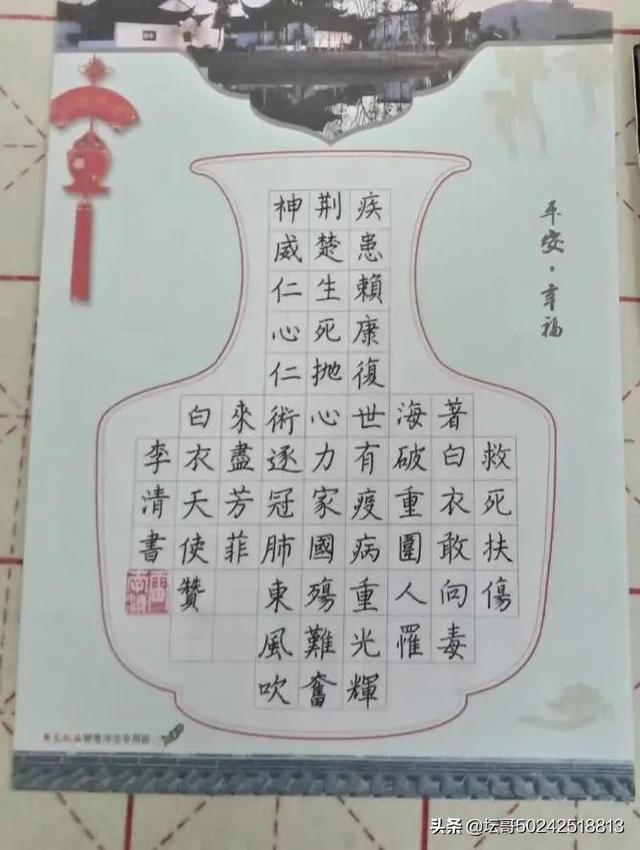 平安·幸福
救死扶傷
著白衣敢向毒
海破重圍人罹
疾患賴康復世有疫病重光輝
荆楚生死抛心力家國殤難奮
神威仁心仁術逐冠肺東風吹
來盡芳菲
白衣天使贊
李清書
头条 @坛哥50242518813